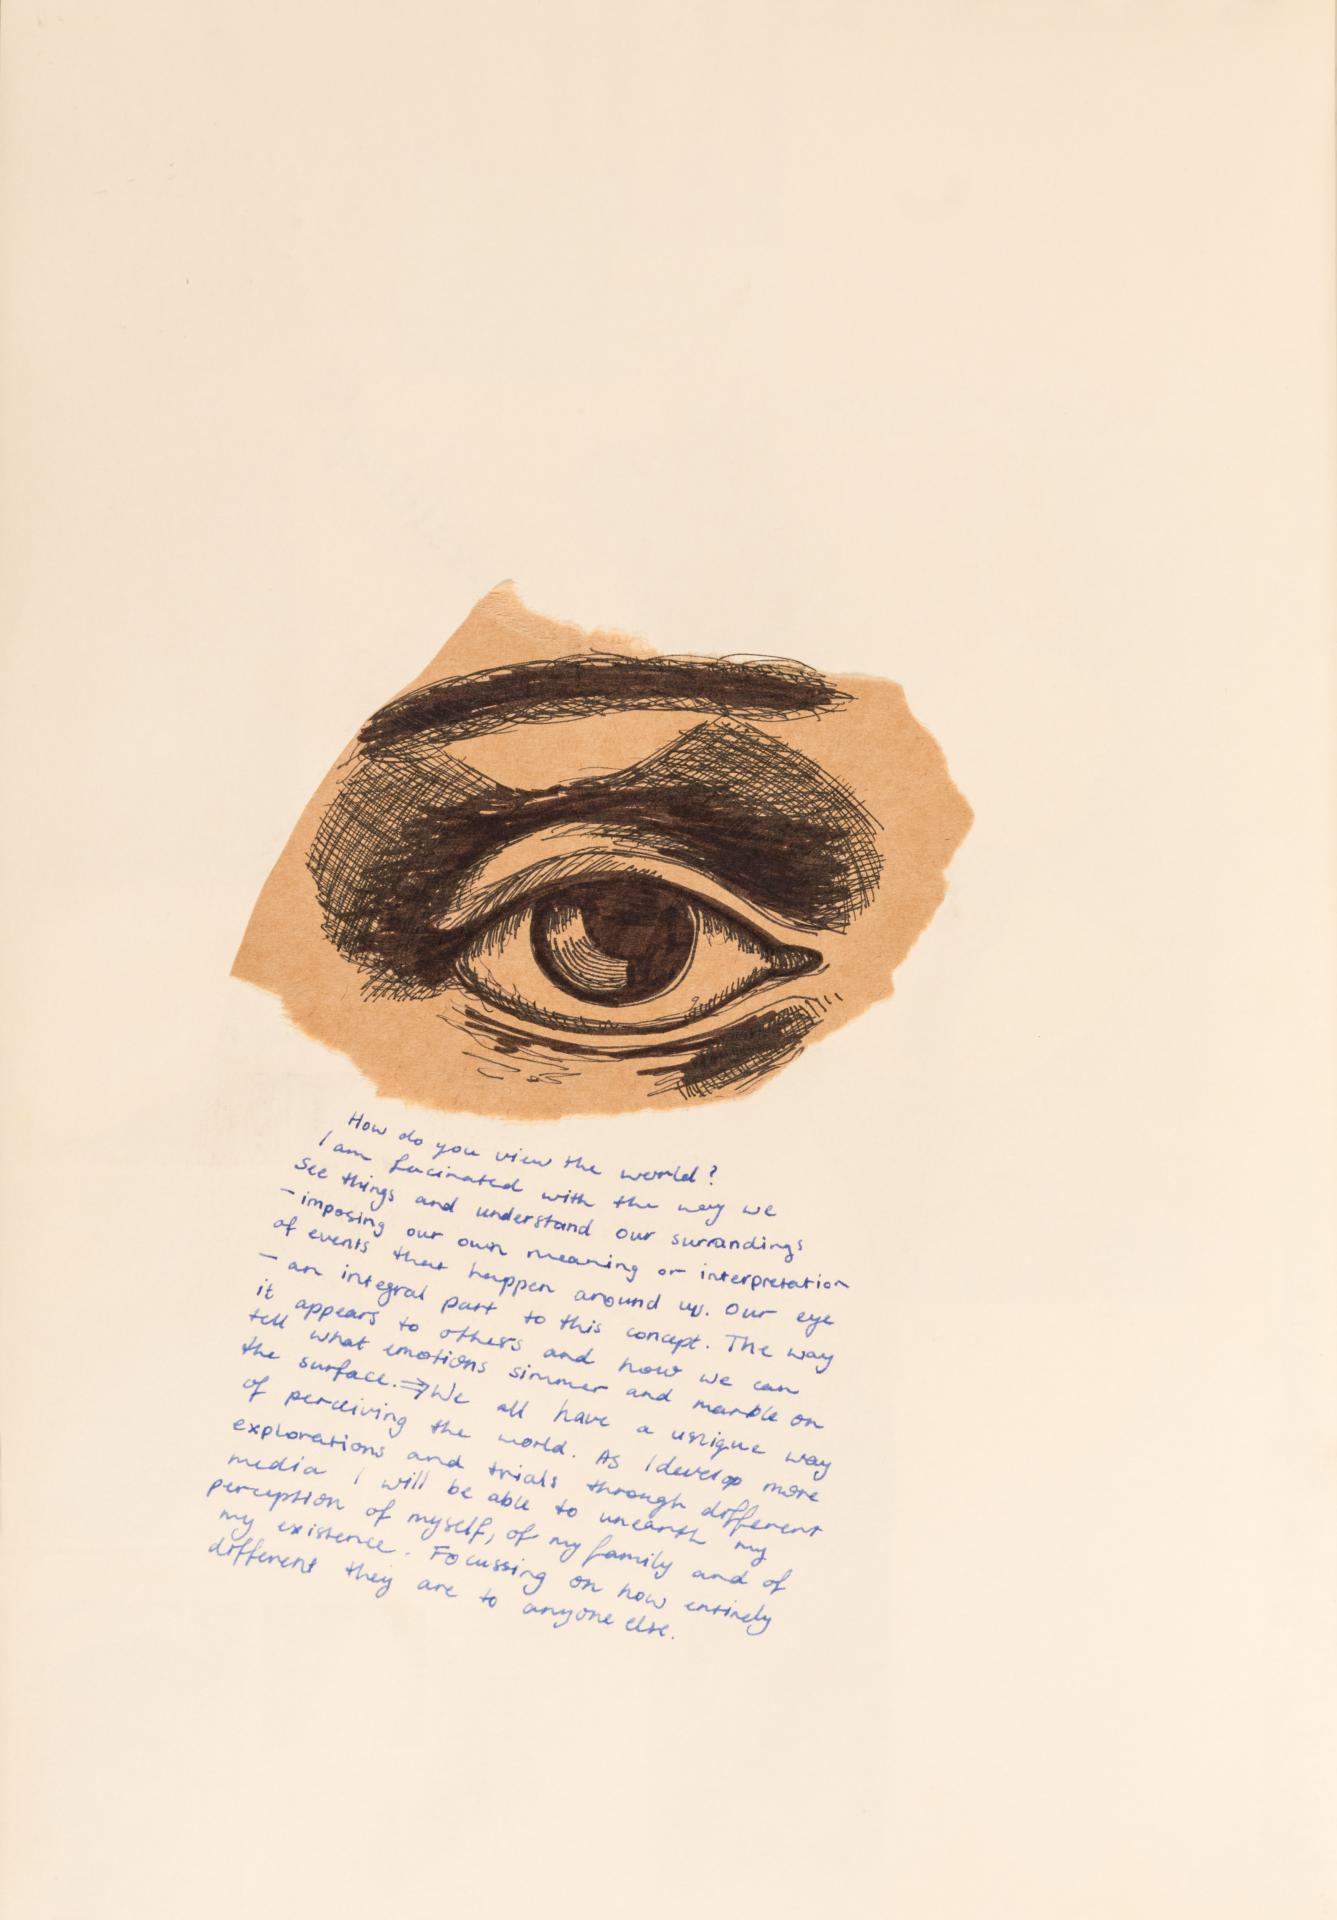 How do you view the world?
I am fucinated with the way we
see things and understand our surrandings
- imposing our own meaning or interpretation
of events that happen around us. Our eye
- an integral part to this concept. The way
it appears to others and how we can
tell what emotions simmer and marble on
the surface. ⇒ We all have a unique way
of perceiving the world. As I develop more
explorations and trials through different
media I will be able to unearth my
perception of myself, of my family and of
my existence. Focussing on how entirely
different they are to anyone else.